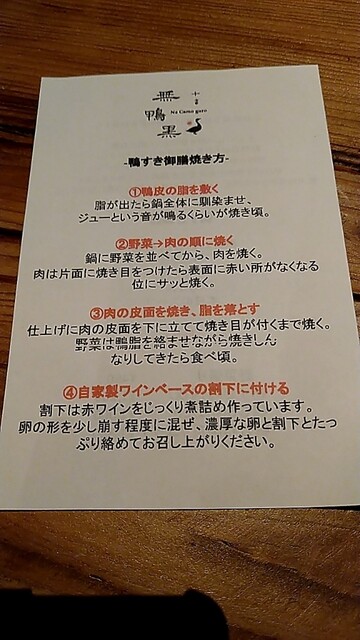 無
鴨
黒
Na Camo guro
-鴨すき御膳焼き方-
①鴨皮の脂を敷く
脂が出たら鍋全体に馴染ませ、
ジューという音が鳴るくらいが焼き頃。
②野菜→肉の順に焼く
鍋に野菜を並べてから、肉を焼く。
肉は片面に焼き目をつけたら表面に赤い所がなくなる
位にサッと焼く。
③肉の皮面を焼き、脂を落とす
仕上げに肉の皮面を下に立てて焼き目が付くまで焼く。
野菜は鴨脂を絡ませながら焼きしん
なりしてきたら食べ頃。
④自家製ワインベースの割下に付ける
割下は赤ワインをじっくり煮詰め作っています。
卵の形を少し崩す程度に混ぜ、濃厚な卵と割下とたっ
ぷり絡めてお召し上がりください。